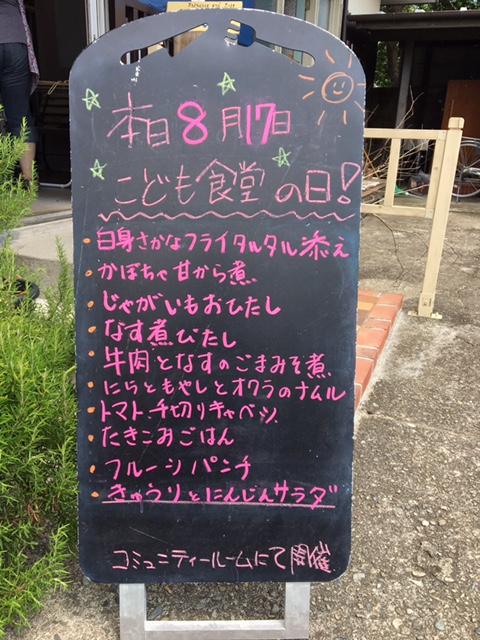 本日8月17日
こども食堂の日!
・白身さかなフライタルタル添え
・かぼちゃ甘から煮
・じゃがいもおひたし
・なす煮びたし
・牛肉となすのごまみそ煮
・にらともやしとオクラのナムル
・トマト、千切りキャベツ
・たきこみごはん
・フルーツパンチ
・きゅうりとにんじんサラダ
コミュニティールームにて開催